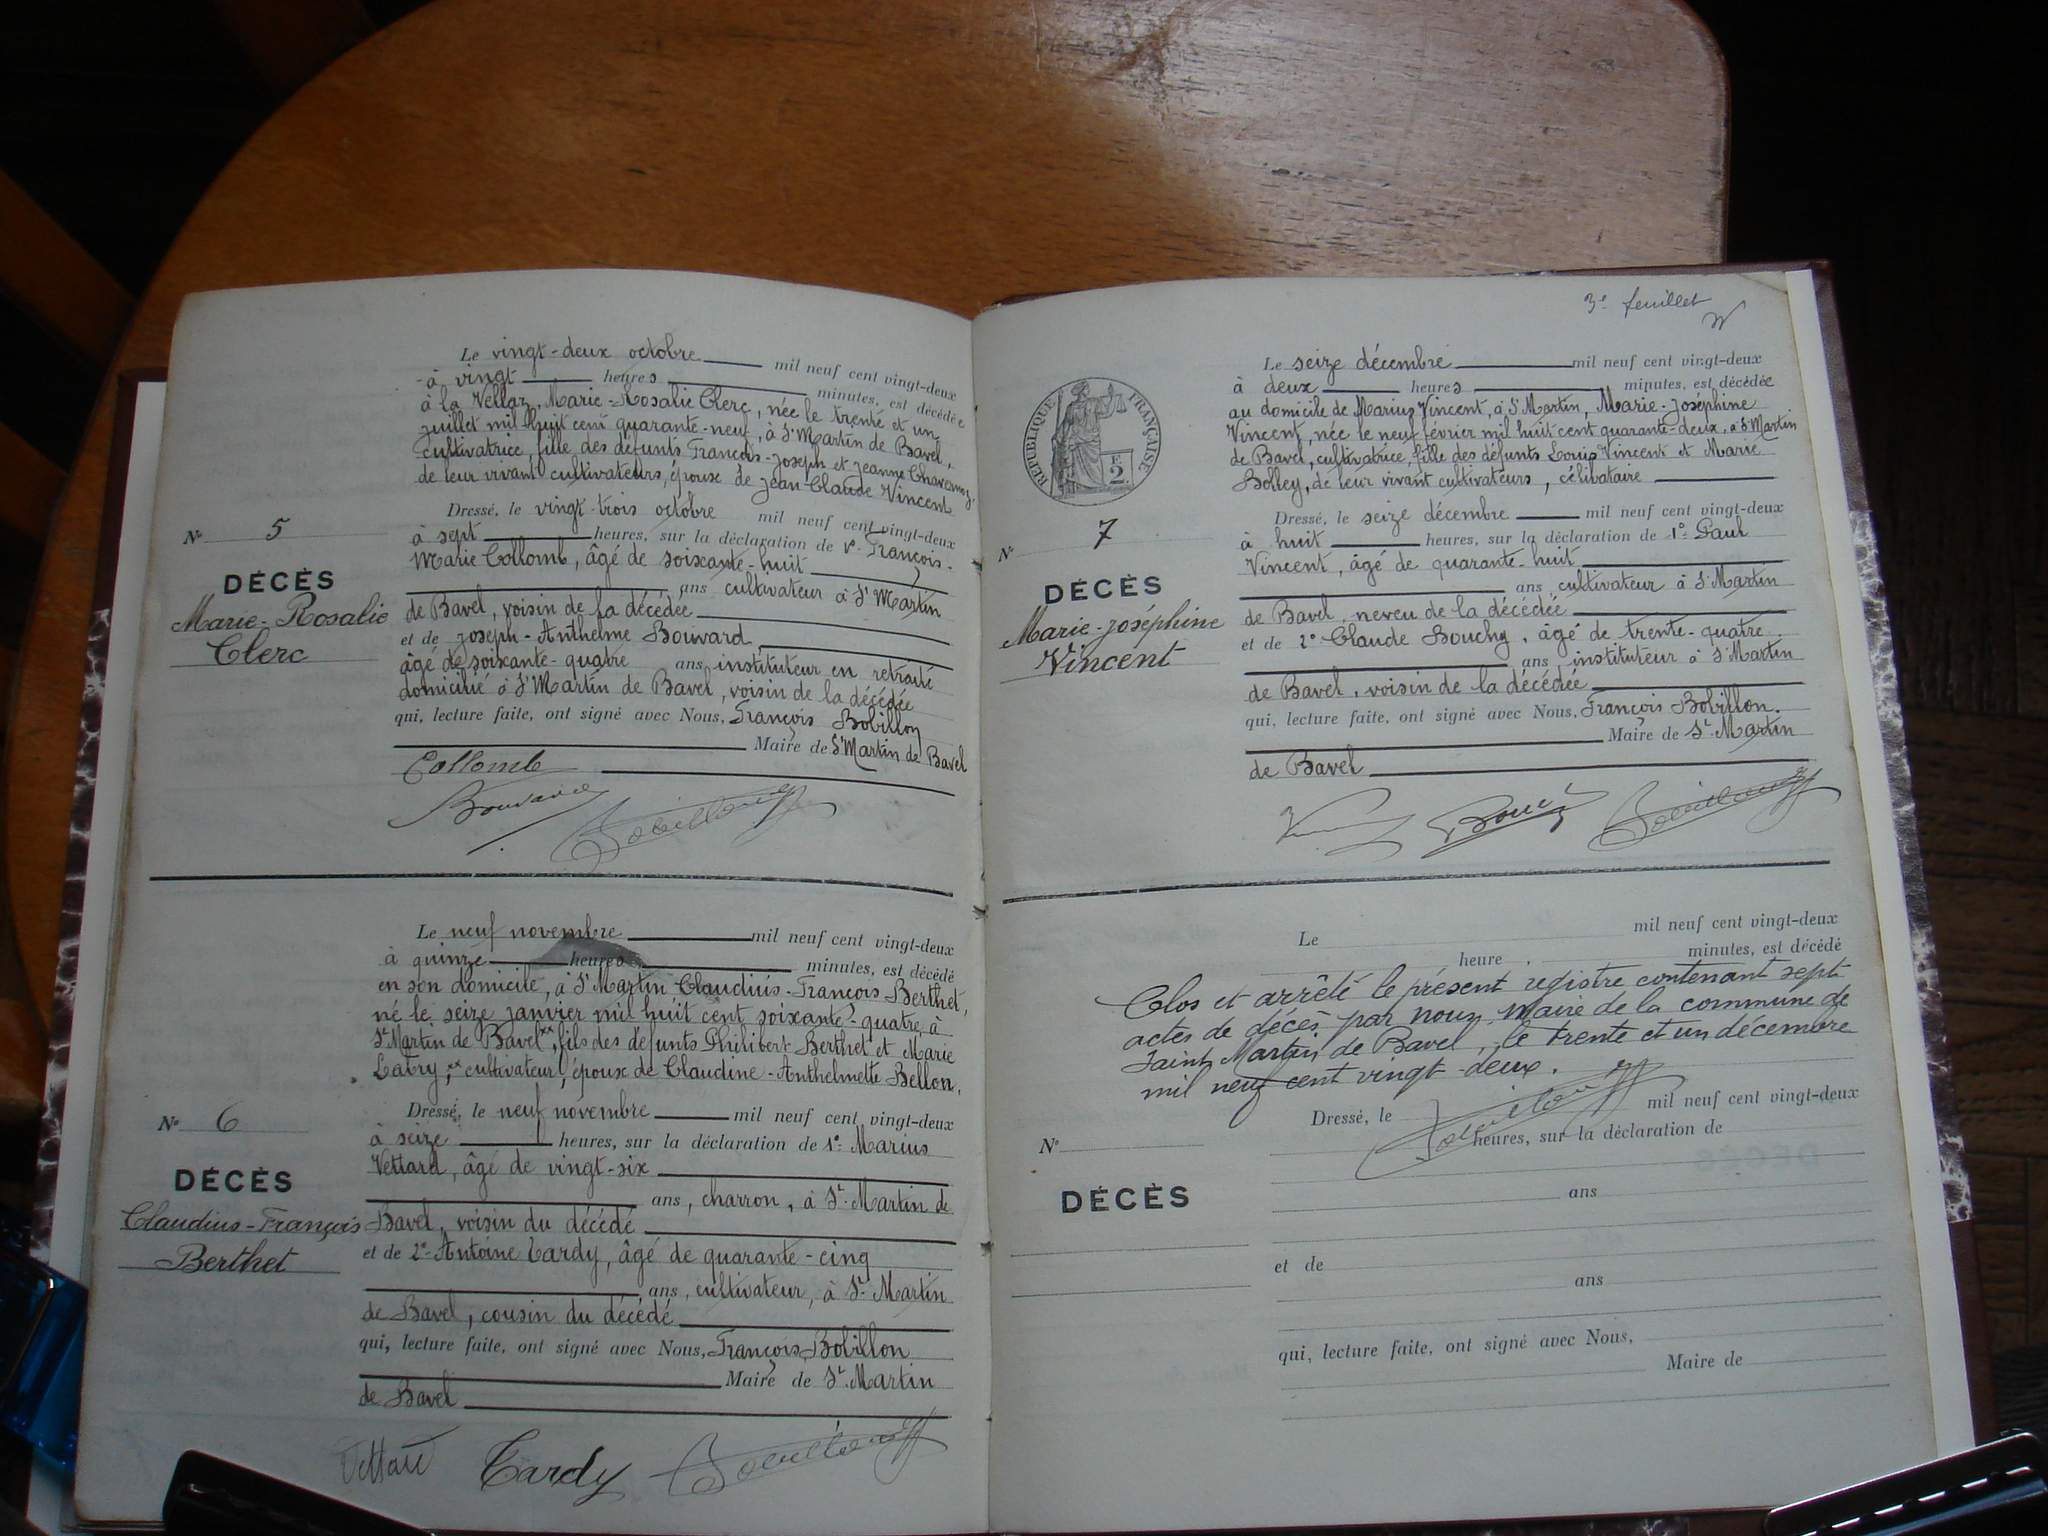 Le vingt-deux octobre mil neuf cent vingt-deux
à vingt heures minutes, est décédée
à la Vellaz, Marie-Rosalie Clerc, née le trente et un
juillet mil huit cent quarante-neuf, à St Martin de Bavel,
cultivatrice, fille des défunts François-Joseph et Jeanne
de leur vivant cultivateurs, épouse de Jean-Claude Vincent
Dressé, le vingt-trois octobre mil neuf cent vingt-deux
à sept heures, sur la déclaration de 1° François-
Marie Collomb, âgé de soixante-huit
ans cultivateur à St Martin
de Bavel, voisin de la décédée
et de Joseph-Anthelme Bouvard,
âgé de soixante-quatre ans, instituteur en retraite
domicilié à St Martin de Bavel, voisin de la décédée
qui, lecture faite, ont signé avec Nous, François Bobillon
Maire de St Martin de Bavel
Collomb
Bouvard
Bobillon
N° 5
DÉCÈS
Marie-Rosalie
Clerc
Le neuf novembre mil neuf cent vingt-deux
à quinze heures minutes, est décédé
en son domicile, à St Martin Claudius-François Berthet,
né le seize janvier mil huit cent soixante-quatre à
St Martin de Bavel, fils des défunts Philibert Berthet et Marie
cultivateur, époux de Claudine-Anthelmette Bellon.
Dressé, le neuf novembre mil neuf cent vingt-deux
à seize heures, sur la déclaration de 1°- Marius
Vettard, âgé de vingt-six
ans, charron, à St Martin de
Bavel, voisin du décédé
et de 2°- Antoine Tardy, âgé de quarante-cinq
ans, cultivateur, à St Martin
de Bavel, cousin du décédé
qui, lecture faite, ont signé avec Nous, François Bobillon
Maire de St Martin
de Bavel
Vettard Tardy Bobillon
N° 6
DÉCÈS
Claudius-François
Berthet
3e feuillet
RÉPUBLIQUE FRANÇAISE
2 F
Le seize décembre mil neuf cent vingt-deux
à deux heures minutes, est décédée
au domicile de Marius Vincent, à St Martin, Marie-Joséphine
Vincent, née le neuf février mil huit cent quarante-deux, à St Martin
de Bavel, cultivatrice, fille des défunts Louis Vincent et Marie
Bolley, de leur vivant cultivateurs, célibataire
Dressé, le seize décembre mil neuf cent vingt-deux
à huit heures, sur la déclaration de 1°- Paul
Vincent, âgé de quarante-huit
ans, cultivateur à St Martin
de Bavel, neveu de la décédée
et de 2°- Claude Bouchy, âgé de trente-quatre
ans, instituteur à St Martin
de Bavel, voisin de la décédée
qui, lecture faite, ont signé avec Nous, François Bobillon.
Maire de St Martin
de Bavel
Bobillon
N° 7
DÉCÈS
Marie-Joséphine
Vincent
Le mil neuf cent vingt-deux
heure, minutes, est décédé
Clos et arrêté le présent registre contenant sept
actes de décès, par nous, Maire de la commune de
Saint Martin de Bavel, le trente et un décembre
mil neuf cent vingt-deux.
Bobillon
Dressé, le mil neuf cent vingt-deux
heures, sur la déclaration de
ans
et de
ans
qui, lecture faite, ont signé avec Nous,
Maire de
N°
DÉCÈS